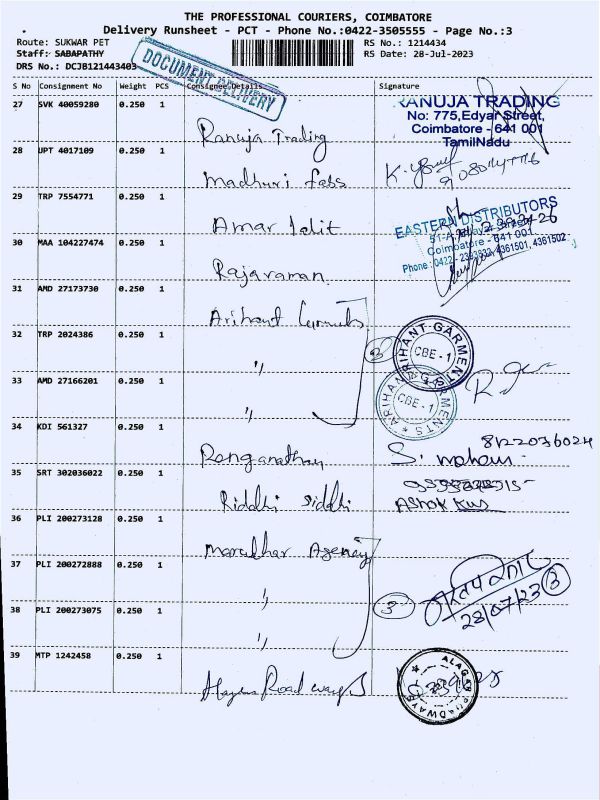 THE PROFESSIONAL COURIERS, COIMBATORE
Delivery Runsheet - PCT - Phone No.:0422-3505555 - Page No.:3
Route: SUKWAR PET
RS No.: 1214434
Staff: SABAPATHY
RS Date: 28-Jul-2023
DRS No.: DCJB121443403
DOCUMENT DELIVERY
S No Consignment No Weight PCS Consignee Details Signature
27 SVK 40059280 0.250 1 Ranuja Trading
RANUJA TRADING
No: 775,Edyar Street,
Coimbatore - 641 001
TamilNadu
28 UPT 4017109 0.250 1 Madhuri fabs
29 TRP 7554771 0.250 1 Amar
EASTERN DISTRIBUTORS
Coimbatore - 641 001
Phone: 0422 4361501, 4361502
30 MAA 104227474 0.250 1 Rajaraman
31 AMD 27173730 0.250 1 Arihant
32 TRP 2024386 0.250 1 "
3
ARIHANT GARMENTS
CBE - 1
33 AMD 27166201 0.250 1 "
ARIHANT GARMENTS
CBE - 1
34 KDI 561327 0.250 1 Ranganathan
8122036024
35 SRT 302036022 0.250 1 Riddhi Siddhi
Ashok
36 PLI 200273128 0.250 1 Marudhar Agency
37 PLI 200272888 0.250 1 "
3
28/07/23 3
38 PLI 200273075 0.250 1 "
39 MTP 1242458 0.250 1